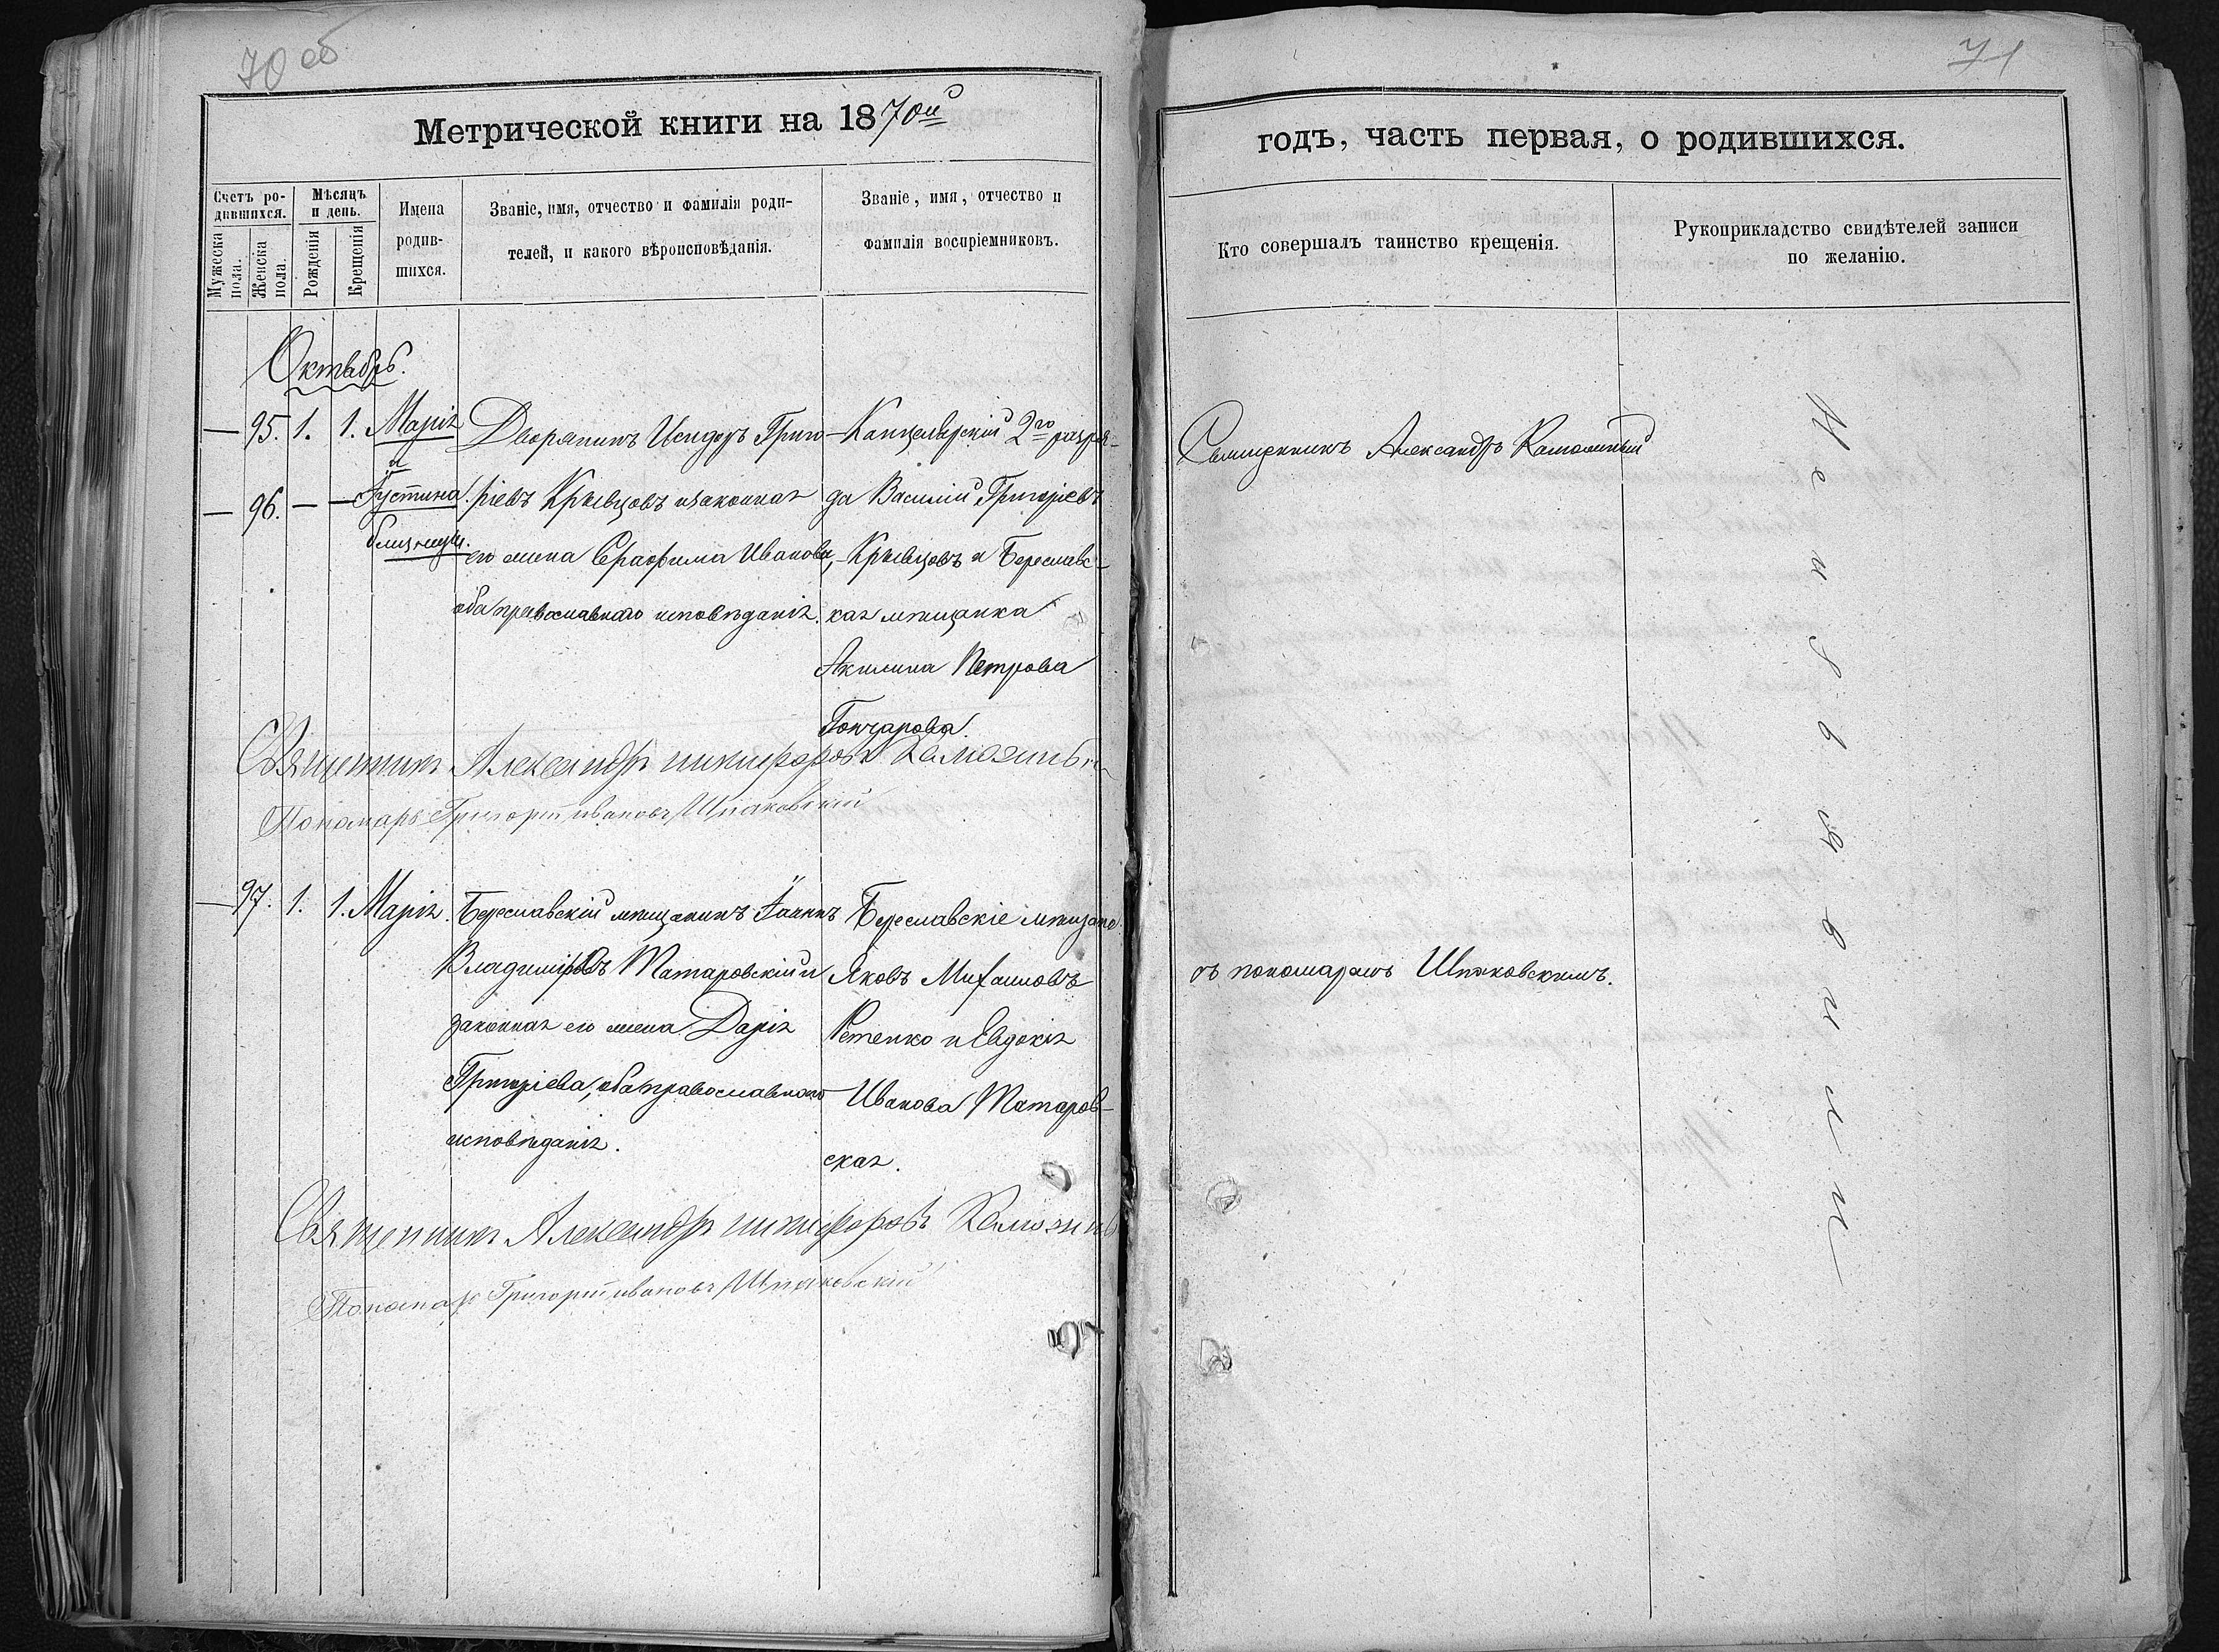 70 об
Метрической книги на 1870й
Счетъ ро-
дившихся.
Мѣсяцъ
и день.
Мужеска
пола.
Женска
пола.
Рожденія
Крещенія
Имена
родив-
шихся.
Званіе, имя, отчество и фамилія роди-
телей, и какого вѣроисповѣданія.
Званіе, имя, отчество и
фамилія воспріемниковъ.
Октябрь.
— 95. 1. 1. Марія
и
— 96. — — Іустина
близницы.
Дворянинъ Исидоръ Григо-
ріевъ Крывцовъ и законная
его жена Серафима Иванова,
оба православнаго исповѣданія.
Канцелярскій 2го разря-
да Василій Григоріевъ
Крывцовъ и Береславс-
кая мѣщанка
Акилина Петрова
Гончарова.
Священникъ Александръ Никифоровъ
Пономарь Григорій Ивановъ Шпаковскій
— 97. 1. 1. Марія.
Береславскій мѣщанинъ Іоаннъ
Владиміровъ Татаровскій и
законная его жена Дарія
Григоріева, оба православнаго
исповѣданія.
Береславскіе мѣщане
Яковъ Михаиловъ
Ретенко и Евдокія
Иванова Татаров-
ская.
Священникъ Александръ Никифоровъ
Пономарь Григорій Ивановъ Шпаковскій
71
годъ, часть первая, о родившихся.
Кто совершалъ таинство крещенія.
Рукоприкладство свидѣтелей записи
по желанію.
Священникъ Александръ
съ пономаремъ Шпаковскимъ.